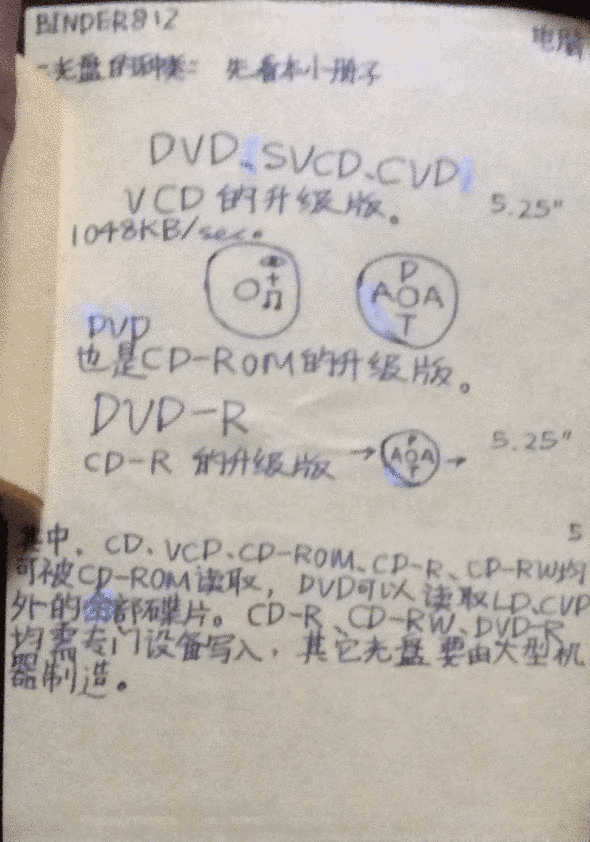 BINDER812
电脑
-光盘的种类: 先看本小册子
DVD、(SVCD、CVD)
VCD的升级版。 5.25"
1048KB/sec。
+
♫
D
AOA
T
DVD
也是CD-ROM的升级版。
DVD-R
CD-R 的升级版 → D AOA T → 5.25"
5
其中、CD、VCD、CD-ROM、CD-R、CD-RW均
可被CD-ROM读取，DVD可以读取LD、CVD
外的全部碟片。CD-R、CD-RW、DVD-R
均需专门设备写入，其它光盘要由大型机
器制造。